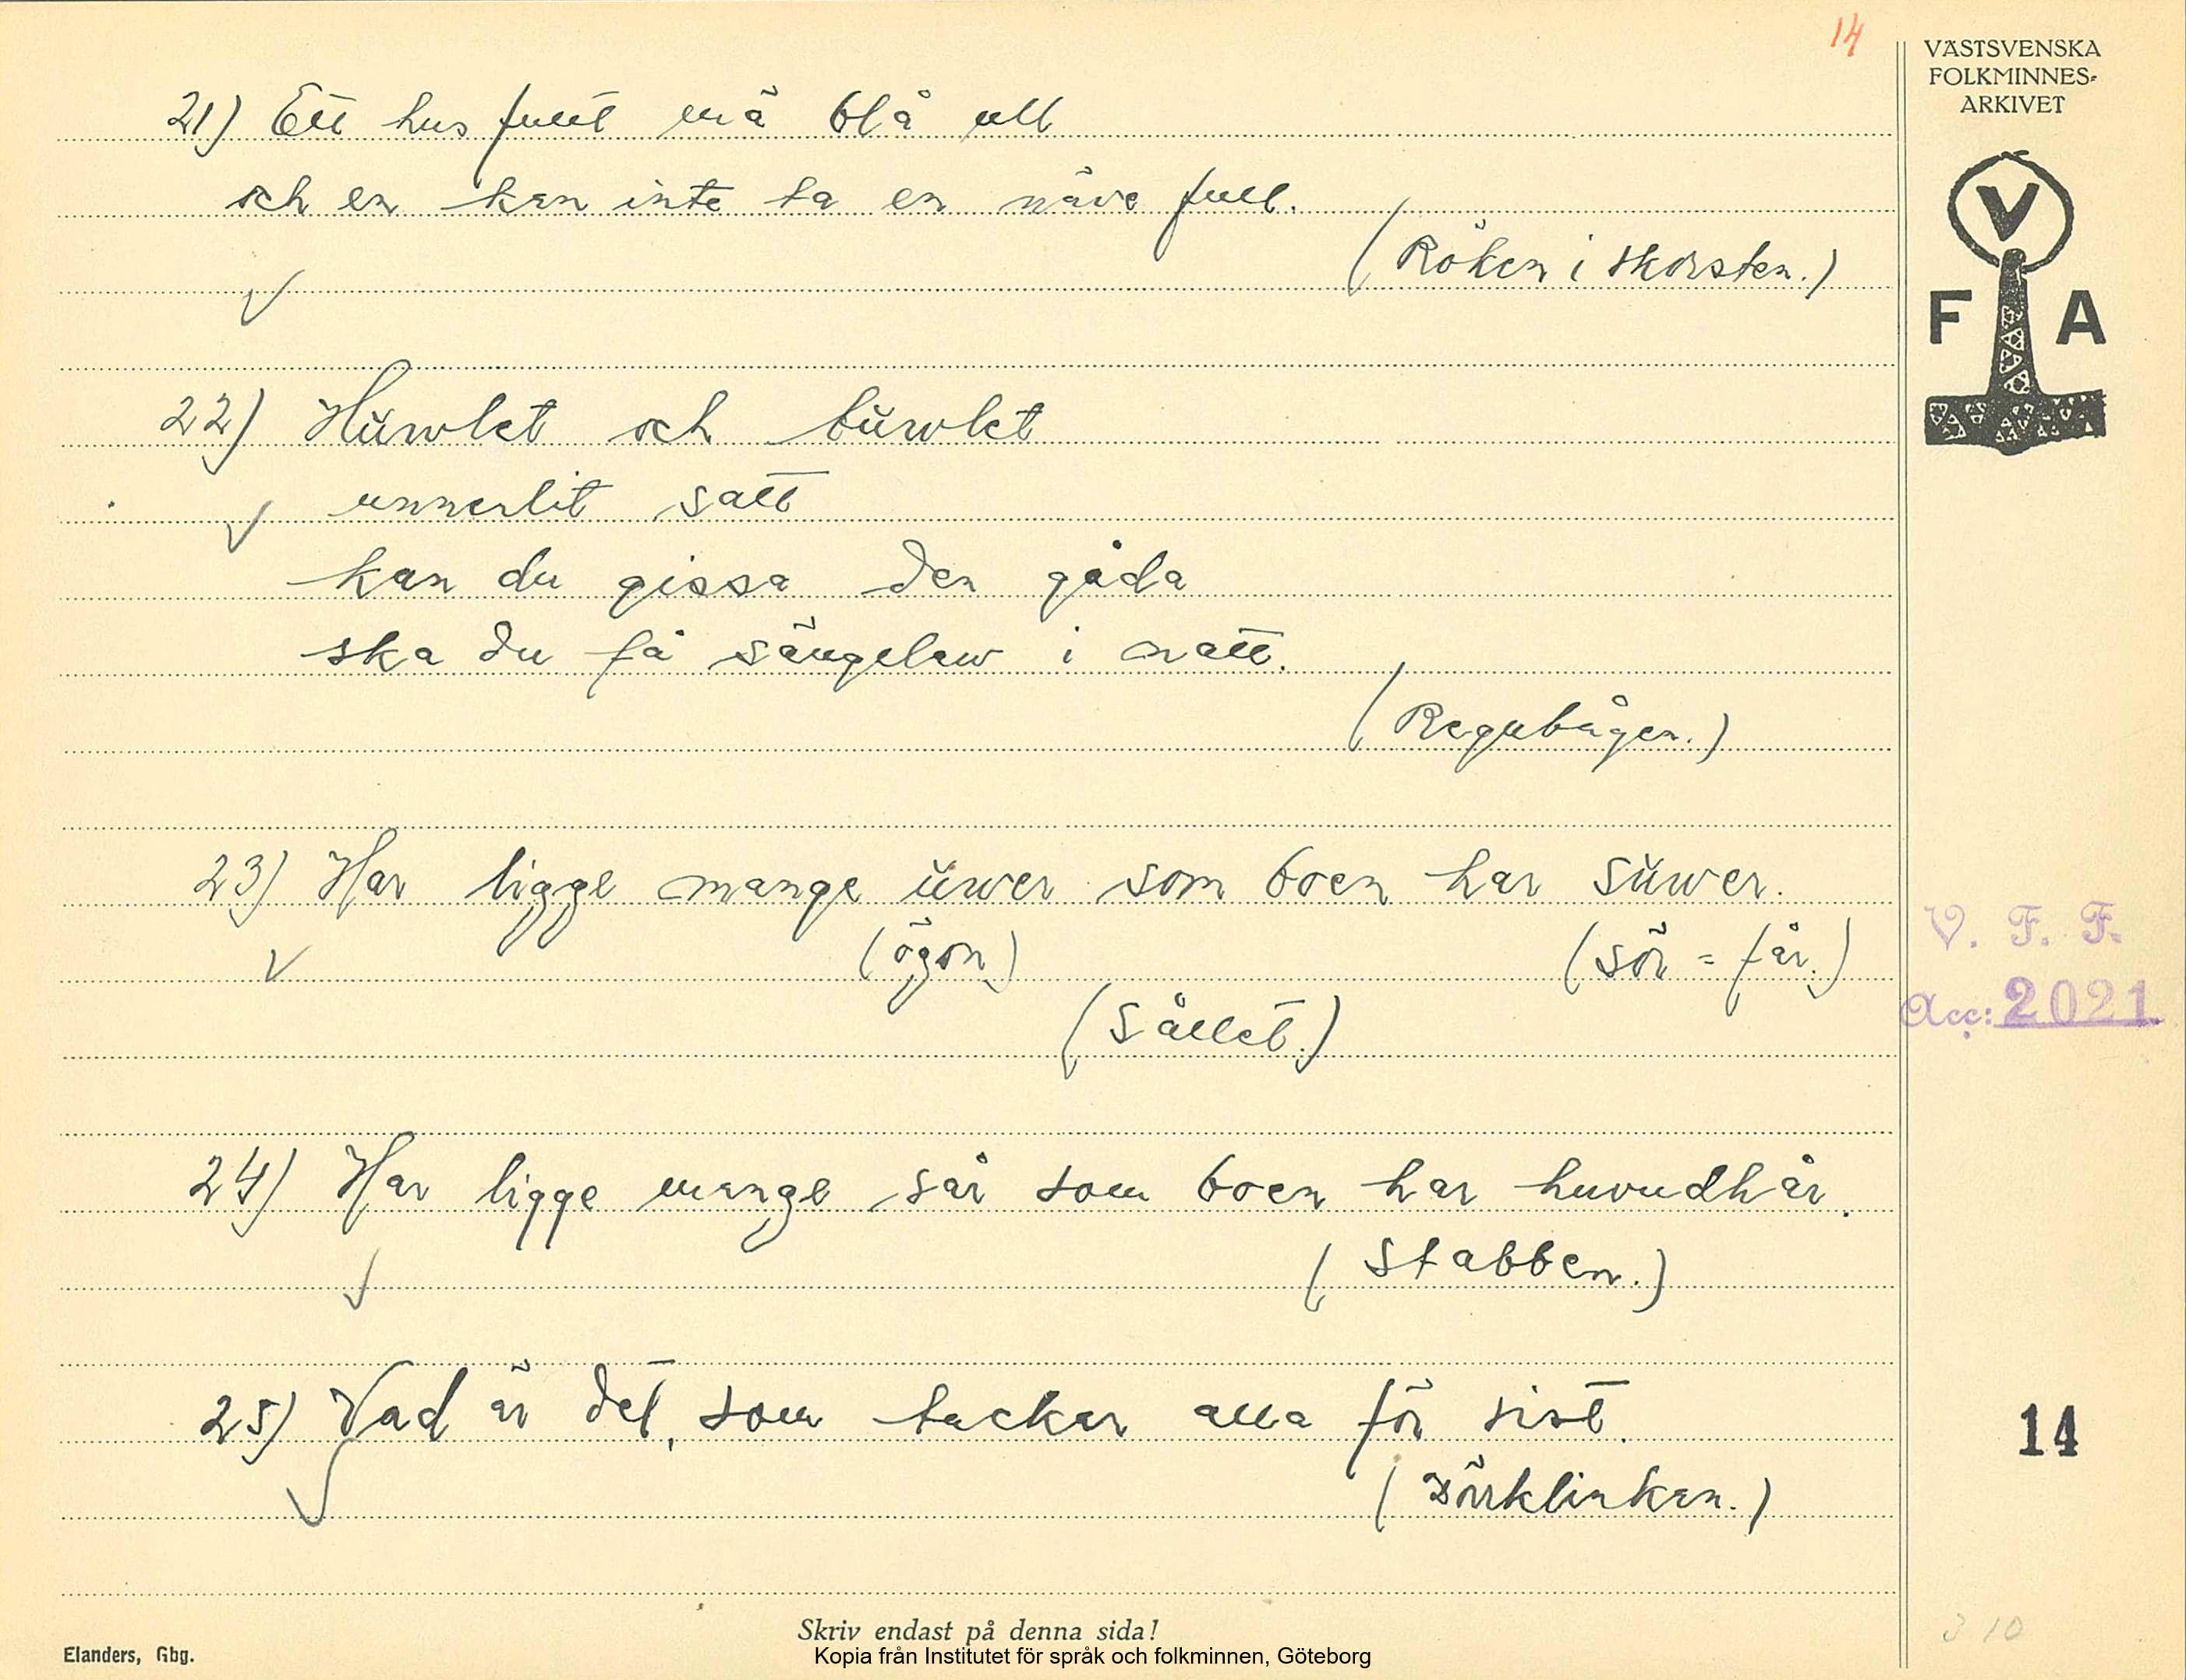 14
VÄSTSVENSKA
FOLKMINNES-
ARKIVET
V
F A
21) Ett hus fullt mä blå ull
och en kan inte ta en näve full.
(Röken i skorsten.)
22) Hŭwlet och bŭwlet
unnerlit satt
kan du gissa den gåda
ska du få sängelaw i natt.
(Regnbågen.)
23) Har ligge mange ŭwer som boen har sŭwer.
(ögon) (sör = får.)
(Sållet.)
24) Har ligge mange sår som boen har huvudhår.
(Stabben.)
25) Vad är det, som tackar alla för sist.
(Dörrklinkan.)
V. F. F.
Acc: 2021
14
310
Skriv endast på denna sida!
Elanders, Gbg.
Kopia från Institutet för språk och folkminnen, Göteborg